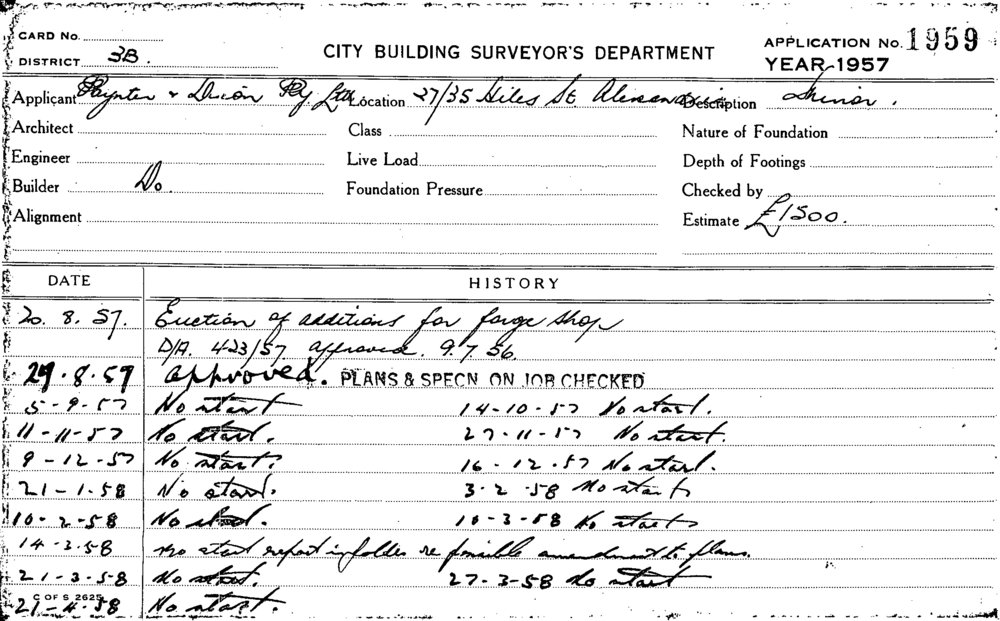 CARD No.
DISTRICT 3B.
CITY BUILDING SURVEYOR'S DEPARTMENT
APPLICATION No. 1959
YEAR 1957
Applicant Paynter & Dixon Pty Ltd Location 27/35 Hiles St Alexandria Description Minor.
Architect Class Nature of Foundation
Engineer Live Load Depth of Footings
Builder Do. Foundation Pressure Checked by
Alignment Estimate £1500.
DATE HISTORY
20. 8. 57. Erection of additions for forge shop
D/A. 423/57 approved. 9.7.56.
29.8.57 approved. PLANS & SPECN ON JOB CHECKED
5-9-57 No start 14-10-57 No start.
11-11-57 No start. 27-11-57 No start.
9-12-57 No start. 16-12-57 No start.
21-1-58 No start. 3-2-58 No start
10-2-58 No start. 10-3-58 No start
14-3-58 No start report in folder re possible amendment to plans.
21-3-58 No start. 27-3-58 No start
C OF S 2625
21-4-58 No start.